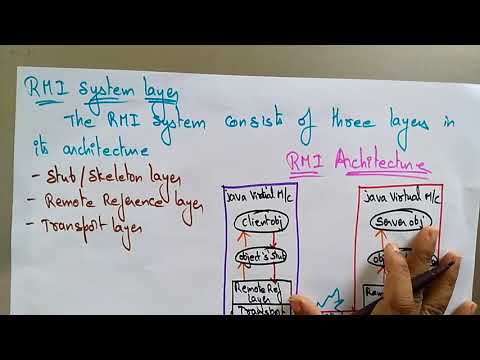 RMI System layer
The RMI System consists of three layers in
its architecture
RMI Architecture
- Stub/Skeleton layer
- Remote Reference layer
- Transport layer
java Virtual M/c
client obj
object's stub
Remote Ref
layer
Transport
java Virtual M/c
Server obj